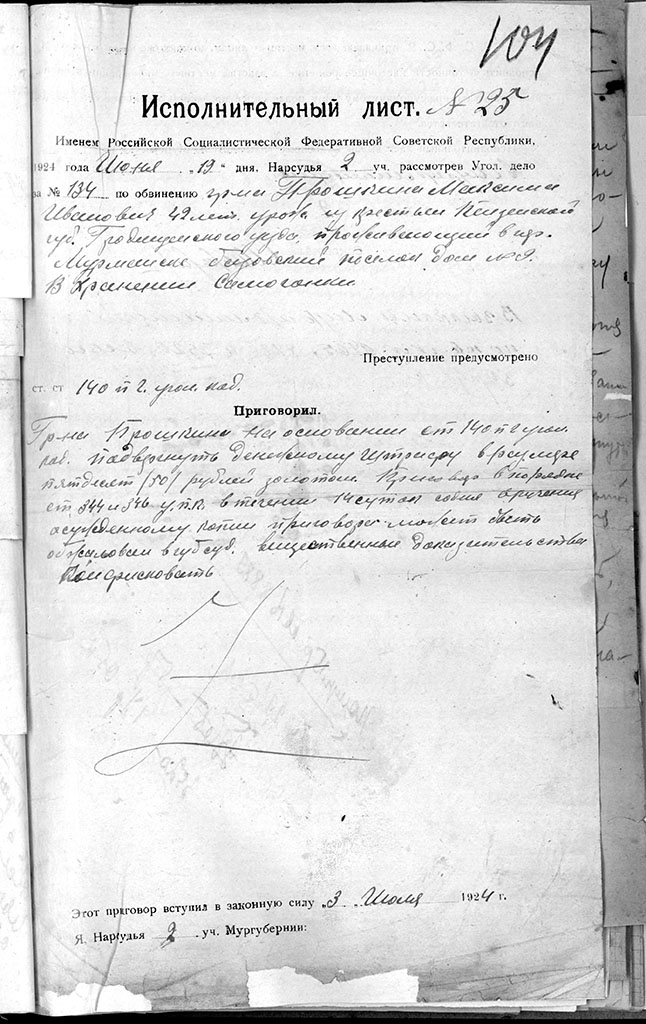 104
Исполнительный лист. № 25
Именем Российской Социалистической Федеративной Советской Республики,
1924 года Июня „19" дня. Нарсудья 2 уч. рассмотрев Угол. дело
за № 134 по обвинению гр-на Прошкина Максима
Иванович 42 лет, урож. из крестьян Пензенской
губ. Городищенского уезда, проживающий в гор.
Мурманске базовский поселок дом № 9.
В хранении самогонки
Преступление предусмотрено
ст. ст 140 п г. угол. код.
Приговорил.
Гр-на Прошкина на основании ст 140 п г угол.
код. подвергнуть денежному штрафу в размере
пятдесят /50/ рублей золотом. Приговор в порядке
ст 344 и 346 у.п.к. в течении 14 суток со дня вручения
осужденному копии приговора может быть
обжалован в губсуд. вещественные доказательства
Конфисковать
Этот приговор вступил в законную силу „3" Июля 1924 г.
Я. Нарсудья 2 уч. Мургубернии: